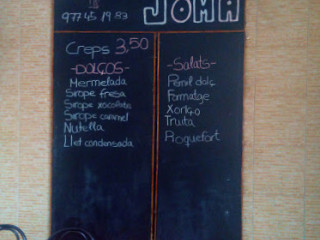 JOMA
977 45 19 83
Creps 3,50
-DOLÇOS-
Mermelada
Sirope fresa
Sirope xocollata
Sirope caramel
Nutella
Llet condensada
-Salats-
Pernil dolç
Formatge
Xoriço
Truita
Roquefort